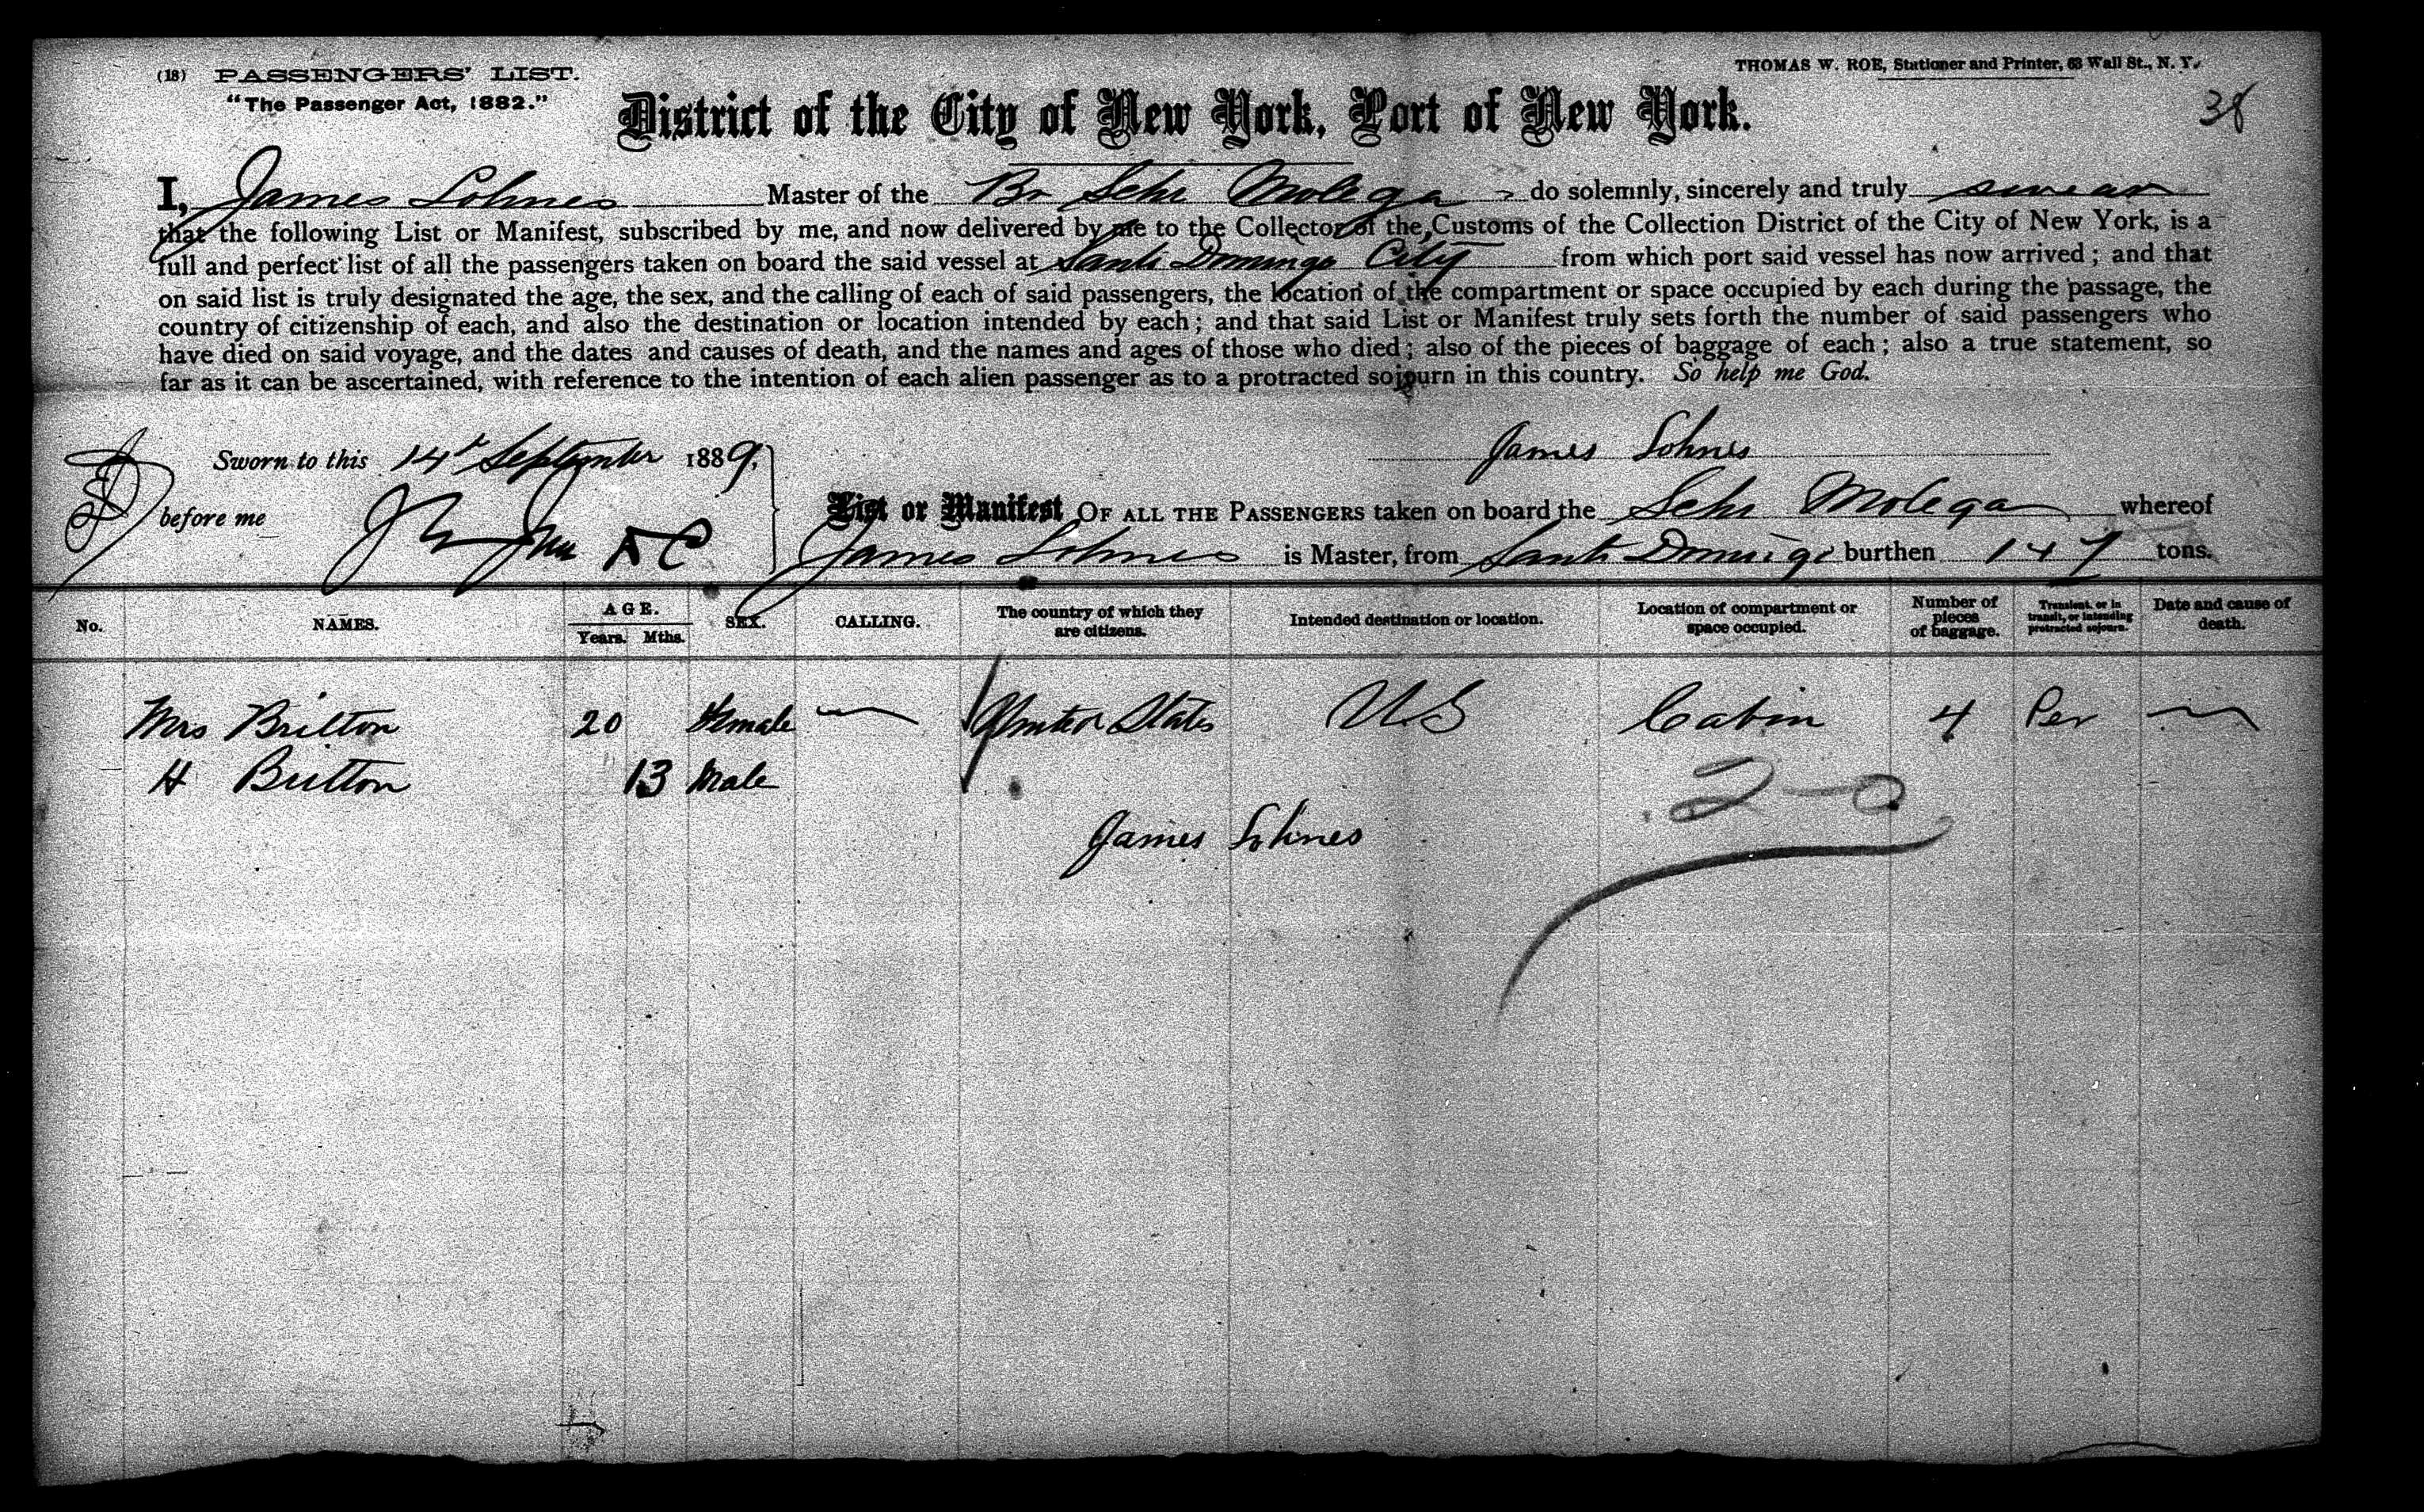 (18) PASSENGERS' LIST.
THOMAS W. ROE, Stationer and Printer, 63 Wall St., N. Y.
"The Passenger Act, 1882."
38
District of the City of New York, Port of New York.
I, James Lohnes Master of the Br Schr Molega do solemnly, sincerely and truly swear
that the following List or Manifest, subscribed by me, and now delivered by me to the Collector of the Customs of the Collection District of the City of New York, is a
full and perfect list of all the passengers taken on board the said vessel at Santo Domingo City from which port said vessel has now arrived; and that
on said list is truly designated the age, the sex, and the calling of each of said passengers, the location of the compartment or space occupied by each during the passage, the
country of citizenship of each, and also the destination or location intended by each; and that said List or Manifest truly sets forth the number of said passengers who
have died on said voyage, and the dates and causes of death, and the names and ages of those who died; also of the pieces of baggage of each; also a true statement, so
far as it can be ascertained, with reference to the intention of each alien passenger as to a protracted sojourn in this country. So help me God.
James Lohnes
Sworn to this 14th September 1889,
before me DC
List or Manifest OF ALL THE PASSENGERS taken on board the Schr Molega whereof
James Lohnes is Master, from Santo Domingo burthen 147 tons.
No. NAMES. AGE. Years. Mths. SEX. CALLING. The country of which they are citizens. Intended destination or location. Location of compartment or space occupied. Number of pieces of baggage. Transient, or in transit, or intending protracted sojourn. Date and cause of death.
Mrs Britton 20 Female United States U.S Cabin 4 Per
H Britton 13 Male
2-0
James Lohnes